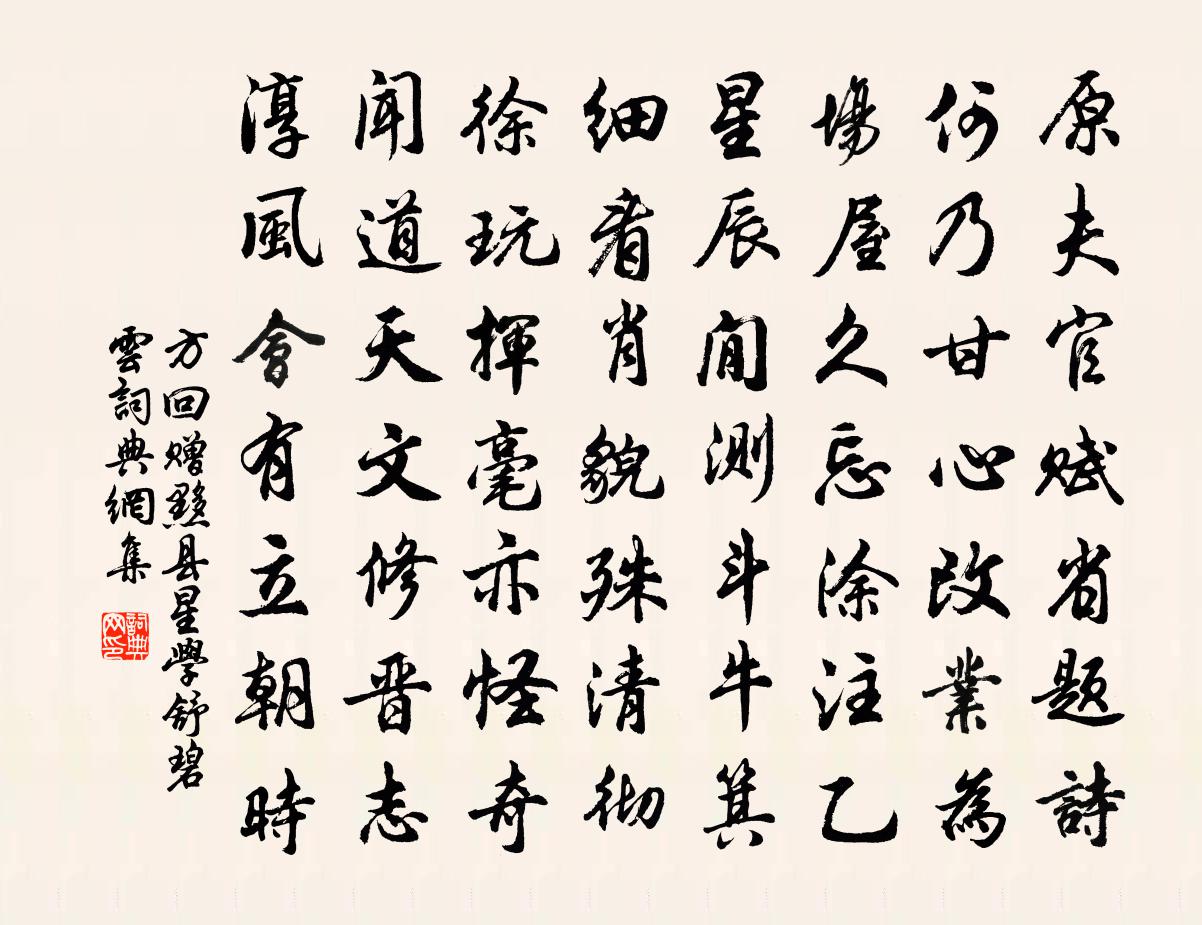 原夫官赋省题詩
何乃甘心改業為
場屋久忘涂注乙
星辰間測斗牛箕
细看肖貌殊清彻
徐玩揮毫亦怪奇
闻道天文修晋志
淳風會有立朝時
方回赠黟县星學舒碧
雲詞典網集
詞典网印